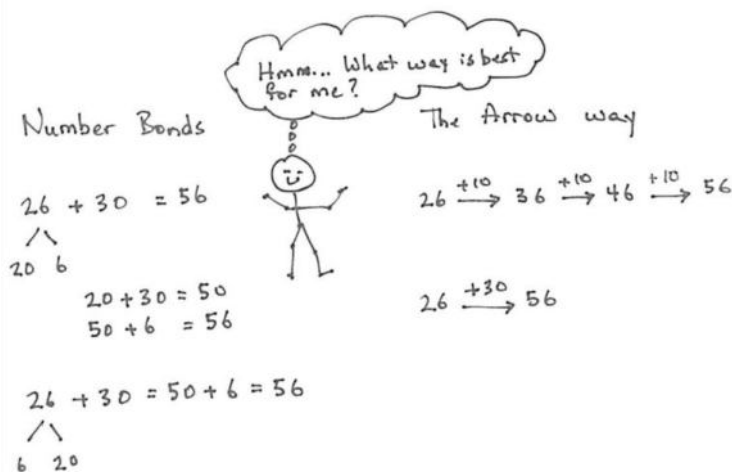 Hmm... What way is best
for me?
Number Bonds
26 + 30 = 56
20 6
20 + 30 = 50
50 + 6 = 56
26 + 30 = 50 + 6 = 56
6 20
The Arrow way
+10 +10 +10
26 → 36 → 46 → 56
+30
26 → 56